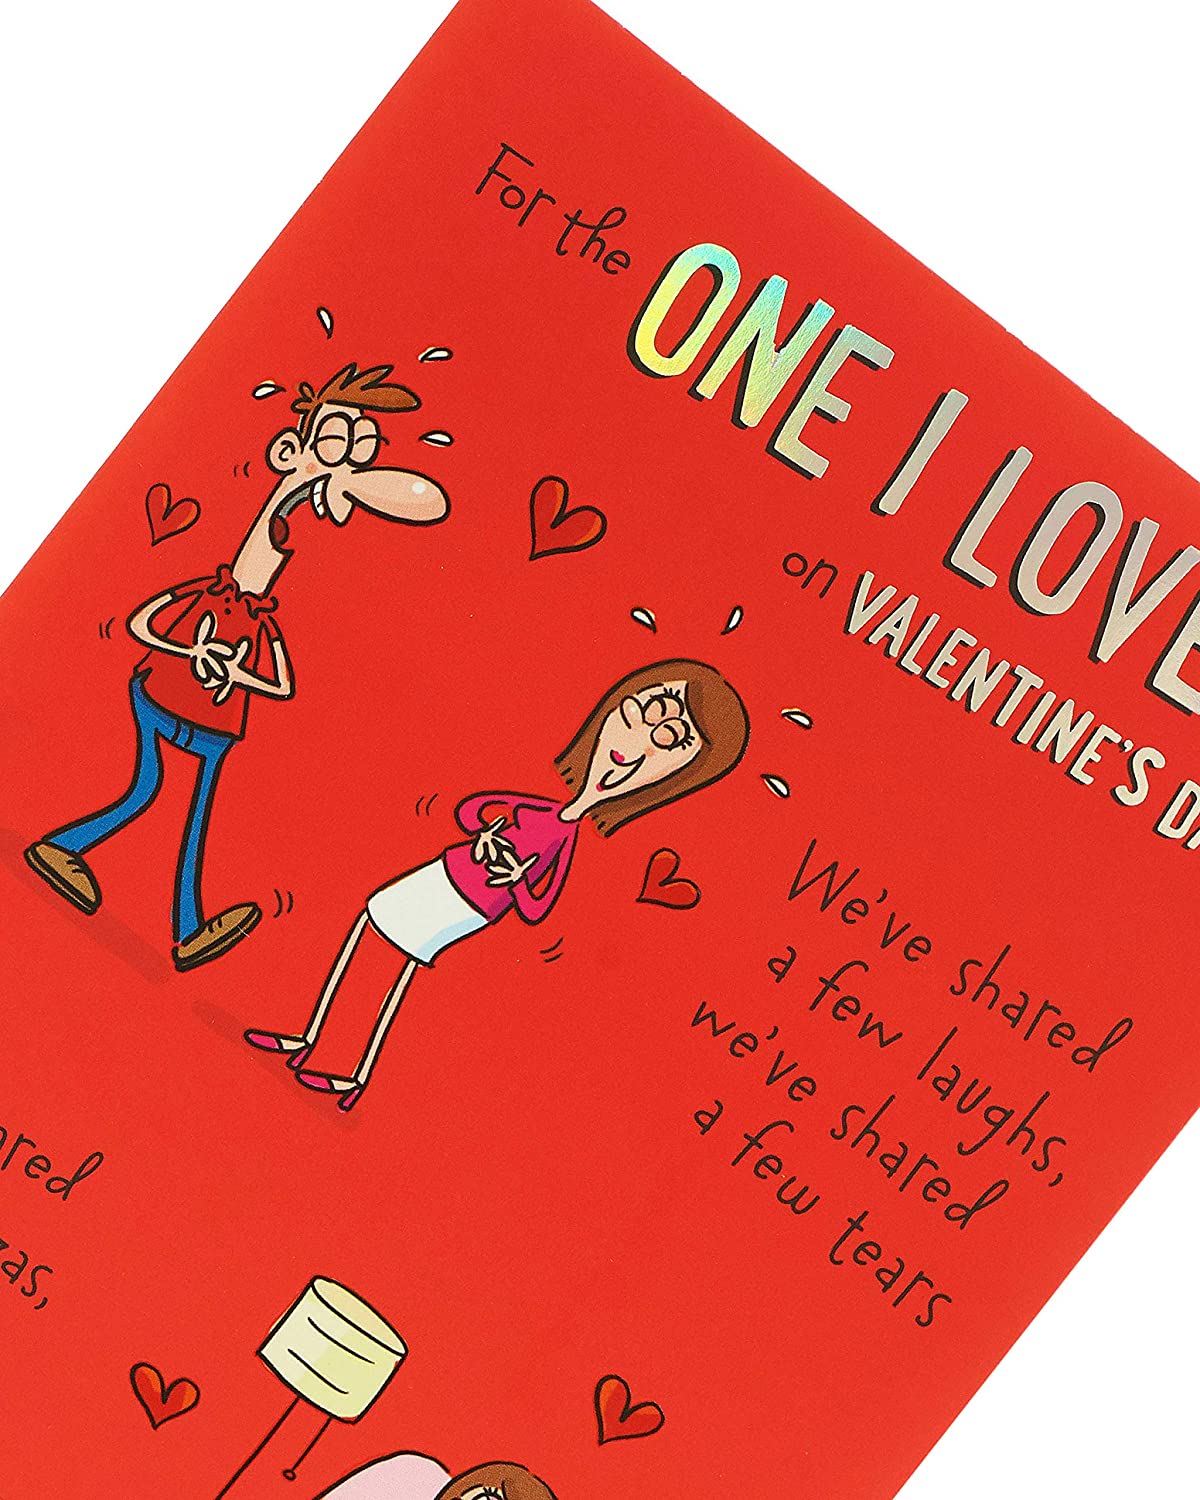 For the
ONE I LOVE
on VALENTINE'S
We've shared
a few laughs,
we've shared
a few tears